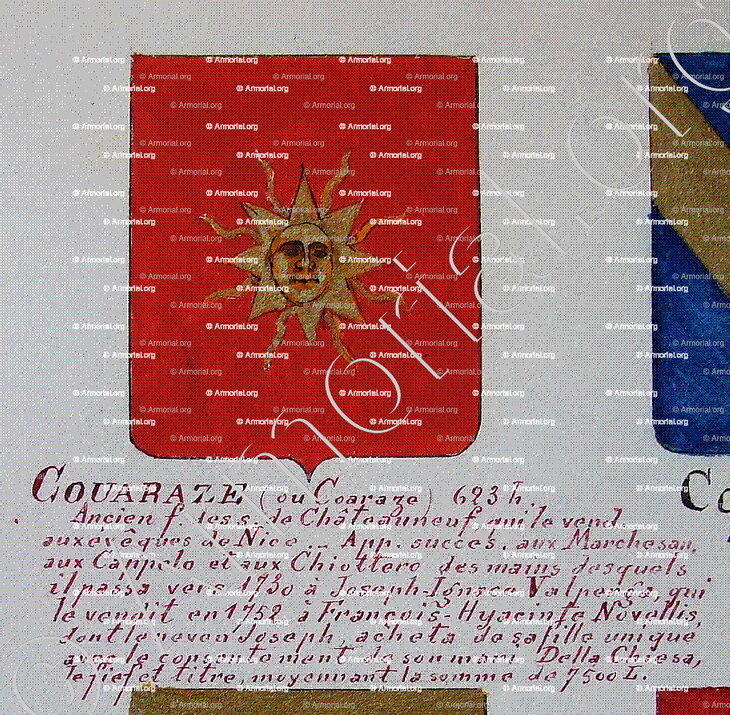 COUARAZE (ou Coaraze) 623 h
Ancien f. des s. de Châteauneuf qui le vend.
aux évêques de Nice _ App. succes. aux Marchesan,
aux Cappelo et aux Chiottero des mains desquels
il passa vers 1730 à Joseph-Ignace Valperga, qui
le vendit en 1758 à François-Hyacinte Novellis,
dont le neveu Joseph, acheta de sa fille unique
avec le consentement de son mari Della Chiesa,
le fief et titre, moyennant la somme de 7500 L.
Co
@ Armorial.org
Armorial.org